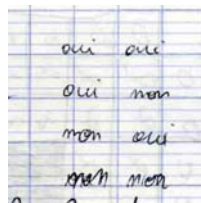 oui oui
oui non
non oui
non non